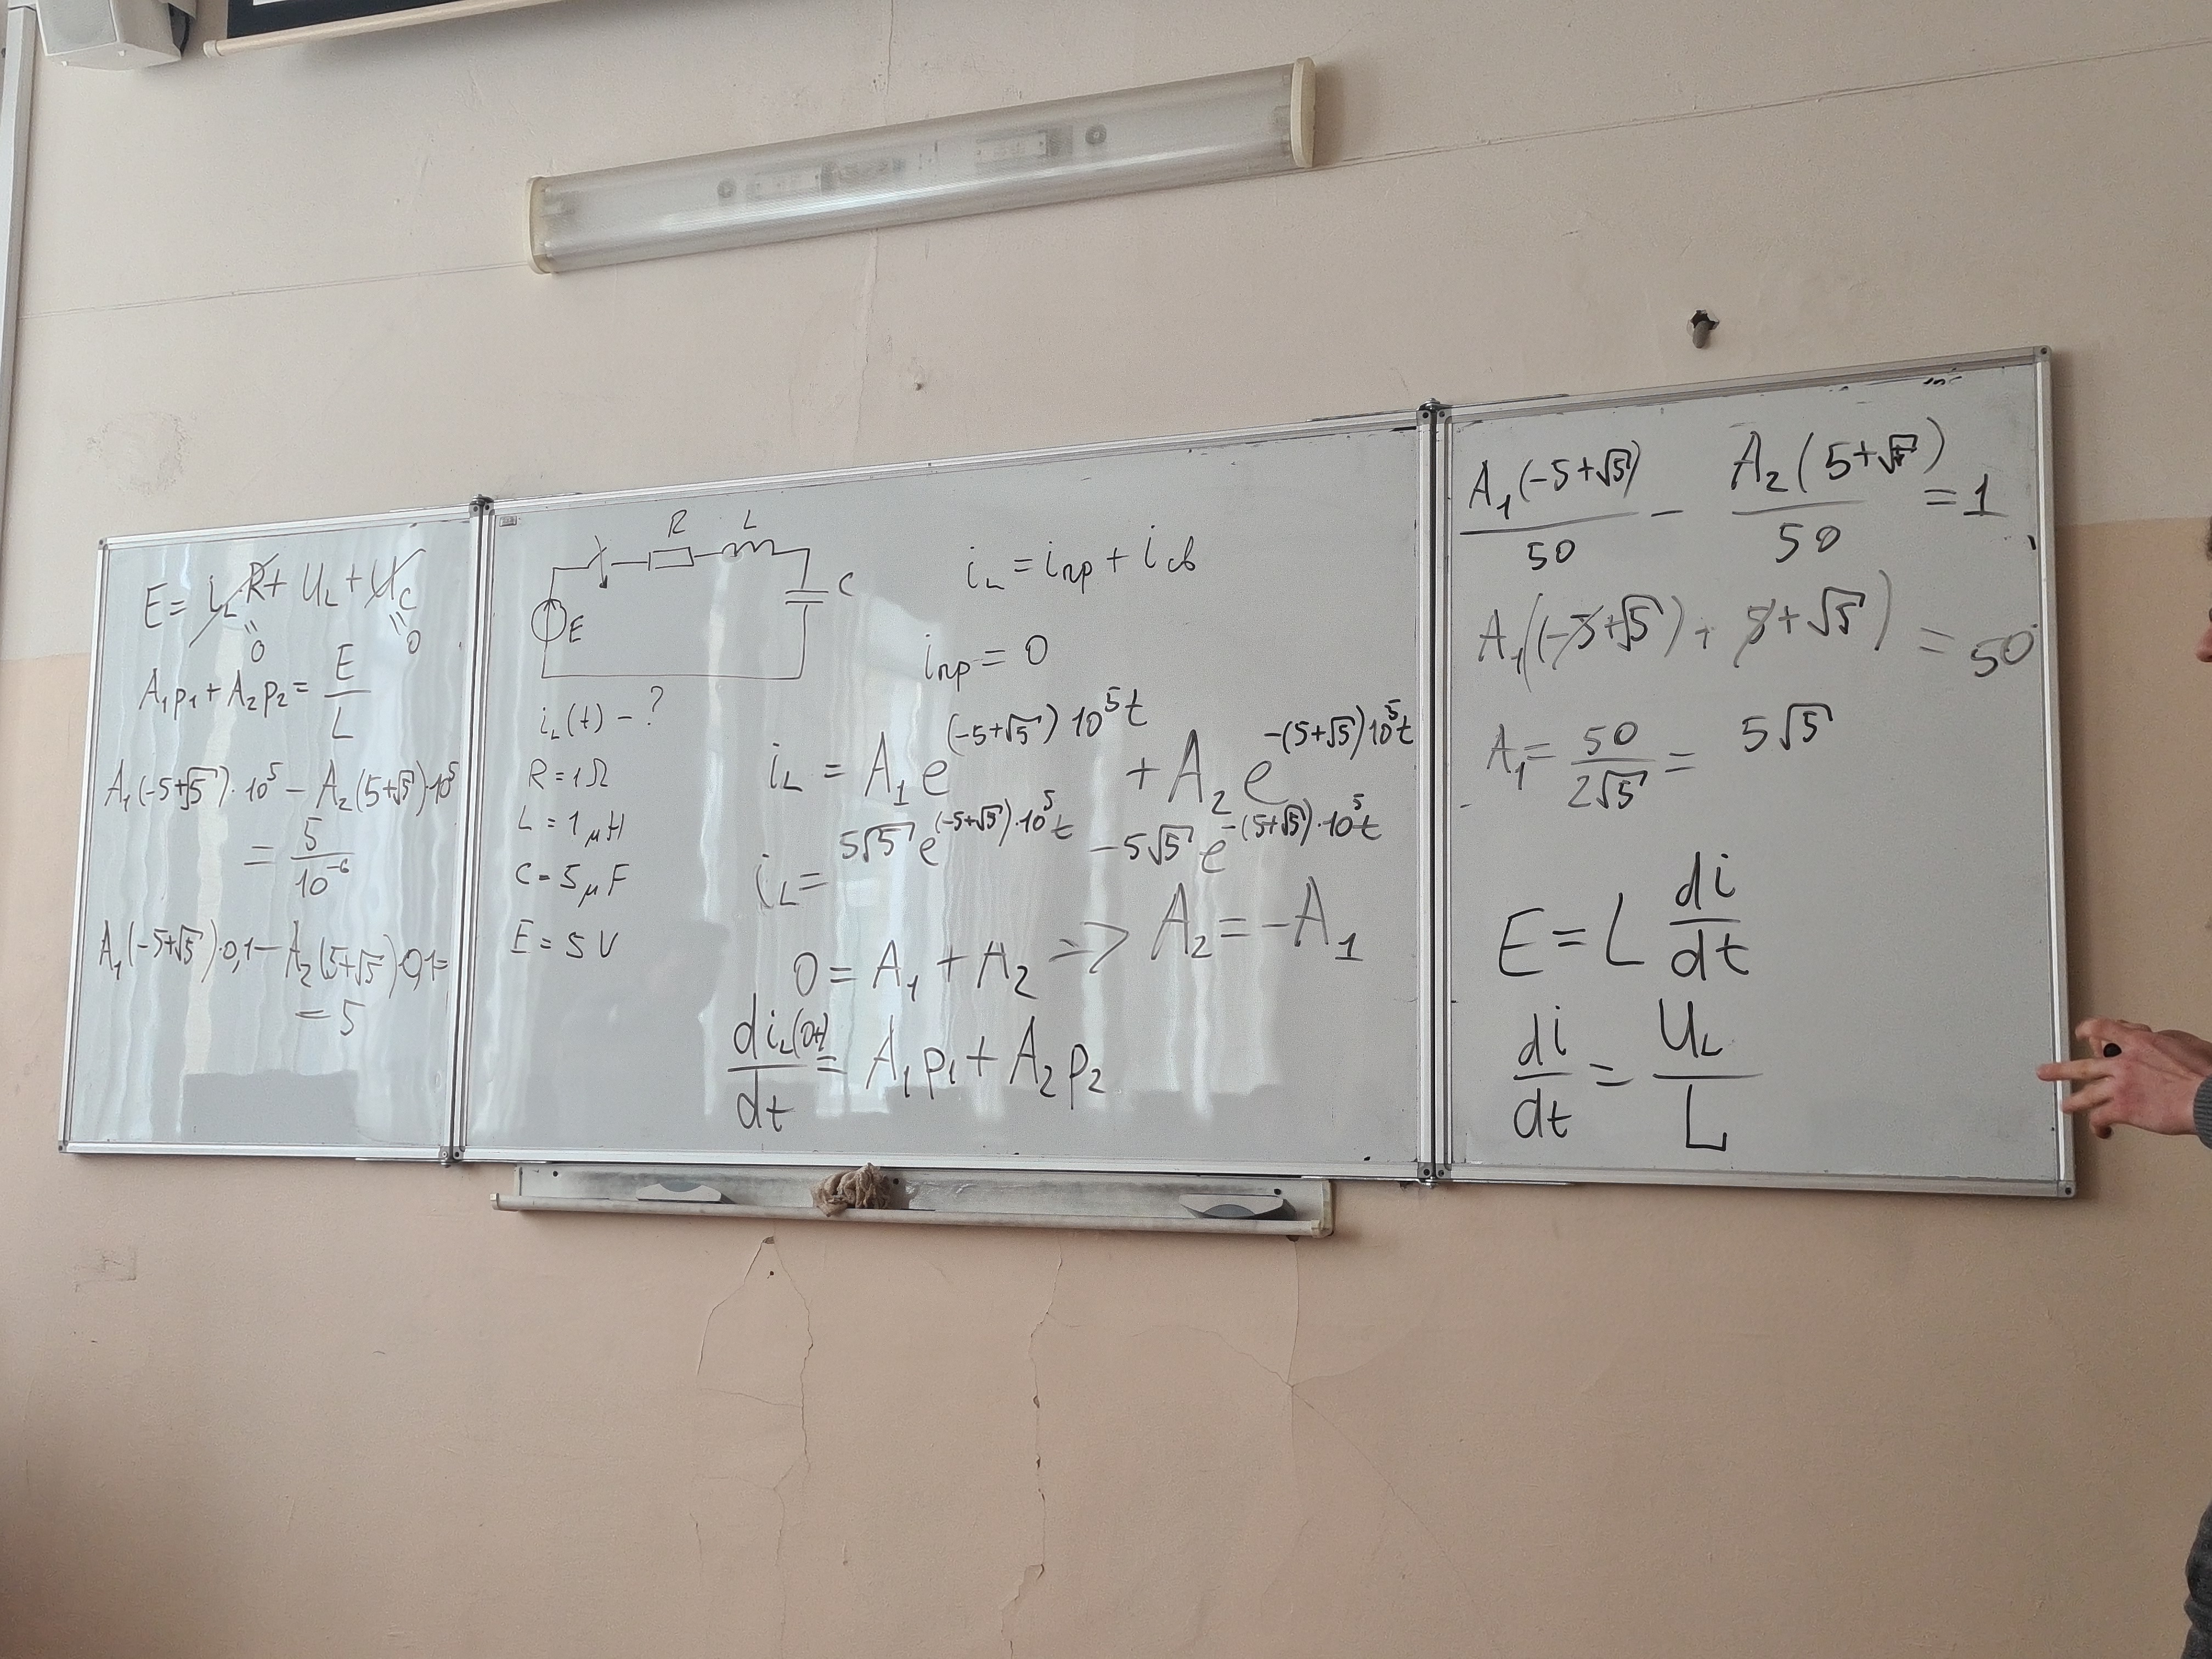 E = i_L R + U_L + U_C
0
0
A₁p₁ + A₂p₂ = E/L
A₁(-5+√5)·10⁵ - A₂(5+√5)·10⁵
= 5/10⁻⁶
A₁(-5+√5)·0,1 - A₂(5+√5)·0,1 =
= 5
R L
C
E
i_L(t) - ?
R = 1Ω
L = 1μH
C = 5μF
E = 5V
i_L = i_пр + i_св
i_пр = 0
i_L = A₁e^((-5+√5)10⁵t) + A₂e^(-(5+√5)10⁵t)
i_L = 5√5 e^((-5+√5)·10⁵t) - 5√5 e^(-(5+√5)·10⁵t)
0 = A₁ + A₂ => A₂ = -A₁
di_L(0+)/dt = A₁p₁ + A₂p₂
A₁(-5+√5)/50 - A₂(5+√5)/50 = 1
A₁((-5+√5) + 5+√5) = 50
A₁ = 50/(2√5) = 5√5
E = L di/dt
di/dt = U_L/L